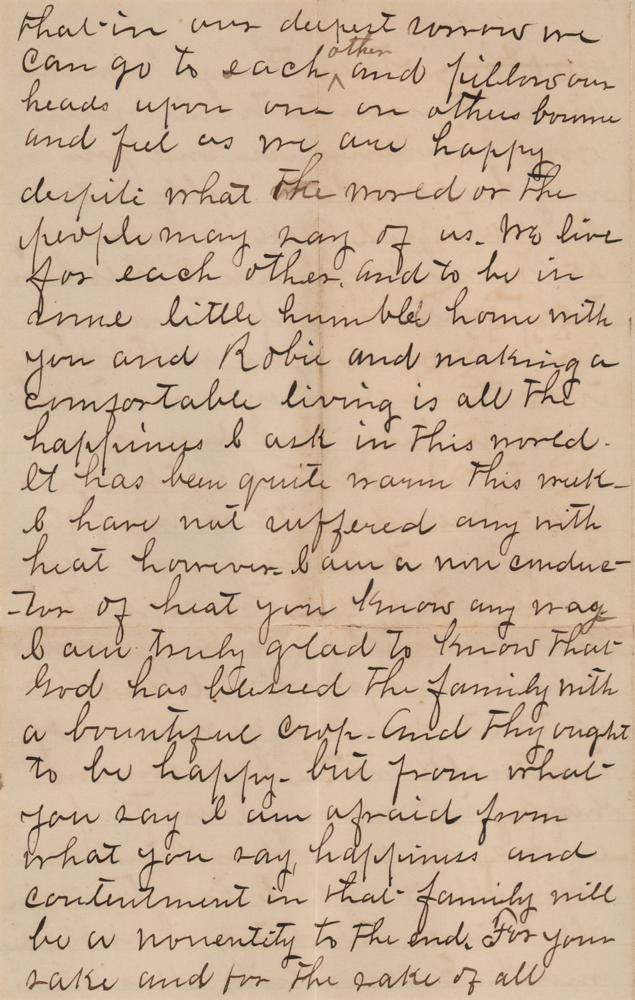 that in our deepest sorrow we
can go to each other and pillow our
heads upon one on others bosome
and feel as we are happy
despite what the world or the
people may say of us. We live
for each other, and to be in
some little humble home with
you and Robie and making a
comfortable living is all the
happiness I ask in this world.
It has been quite warm this week-
I have not suffered any with
heat however. I am a non conduc-
-tor of heat you know any way
I am truly glad to know that
God has blessed the family with
a bountiful crop. And thy ought
to be happy- but from what
you say I am afraid from
what you say, happiness and
contentment in that family will
be a nonentity to the end. For your
sake and for the sake of all